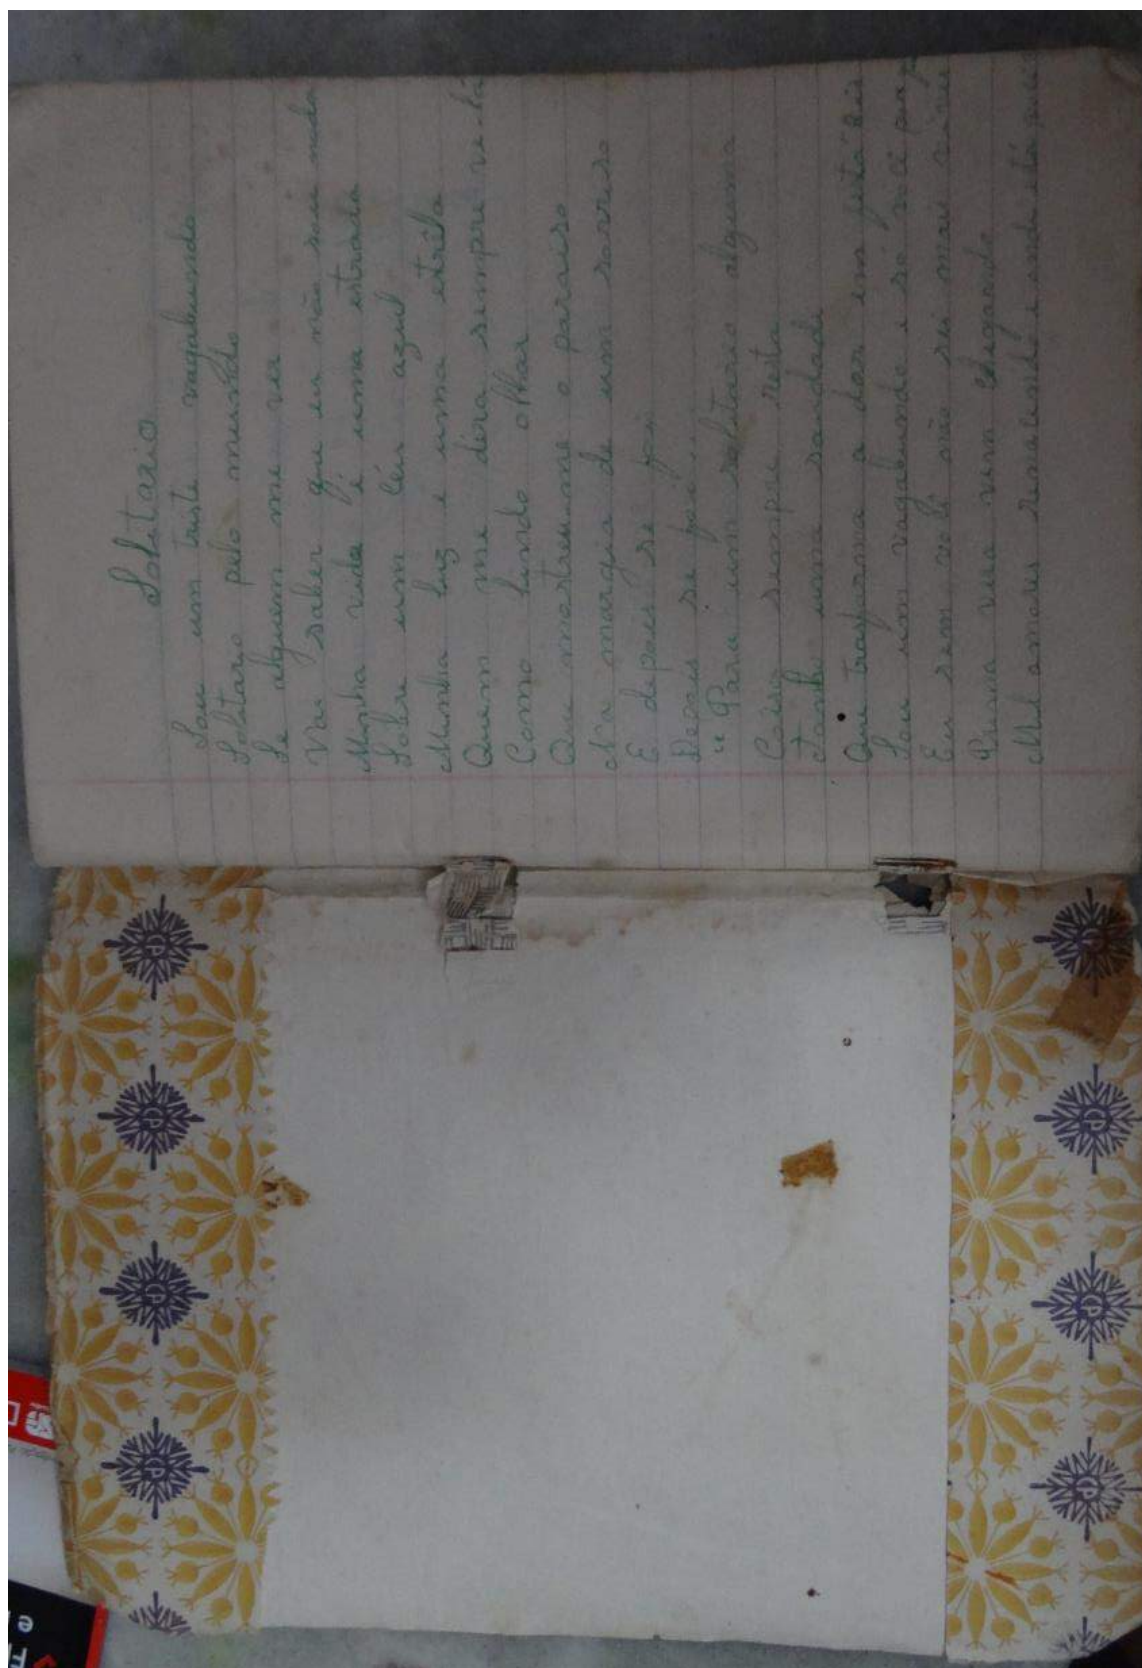 Solitario
Sou um triste vagabundo
Solitario pelo mundo
Se alguem me ver
Vai saber que eu não sou nada
Minha vida é uma estrada
Sobre um céu azul
Minha luz e uma estrêla
Quem me dera sempre ve-la
Como lindo olhar
Que mostrou me o paraiso
Na margia de um sorriso
E depois se foi
Depois se foi...
" Para um solitario alguma
Coisa sempre resta
Tenho uma saudade
Que trasforma a dor em festa
Sou um vagabundo e só você
Eu sem você não sei mas viver
Prima vera vem chegando
Meu amor